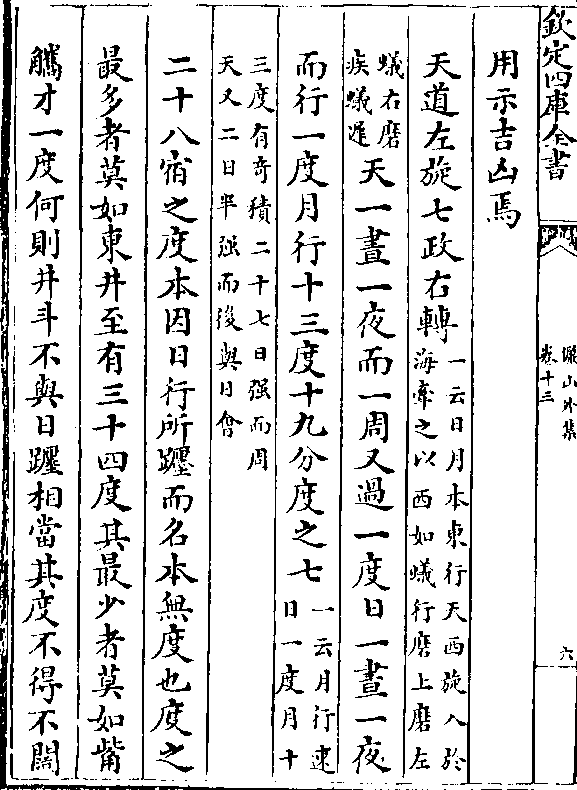 欽定四庫全書
儼山外集
卷十三
六
用示吉凶焉
天道左旋七政右轉一云日月本東行天西旋入於
海牽之以西如蟻行磨上磨左
蟻右磨
疾蟻遲天一晝一夜而一周又過一度日一晝一夜
而行一度月行十三度十九分度之七一云月行速
日一度月十
三度有奇積二十七日强而周
天又二日半强而後與日會
二十八宿之度本因日行所躔而名本無度也度之
最多者莫如東井至有三十四度其最少者莫如觜
觿才一度何則井斗不與日躔相當其度不得不闊